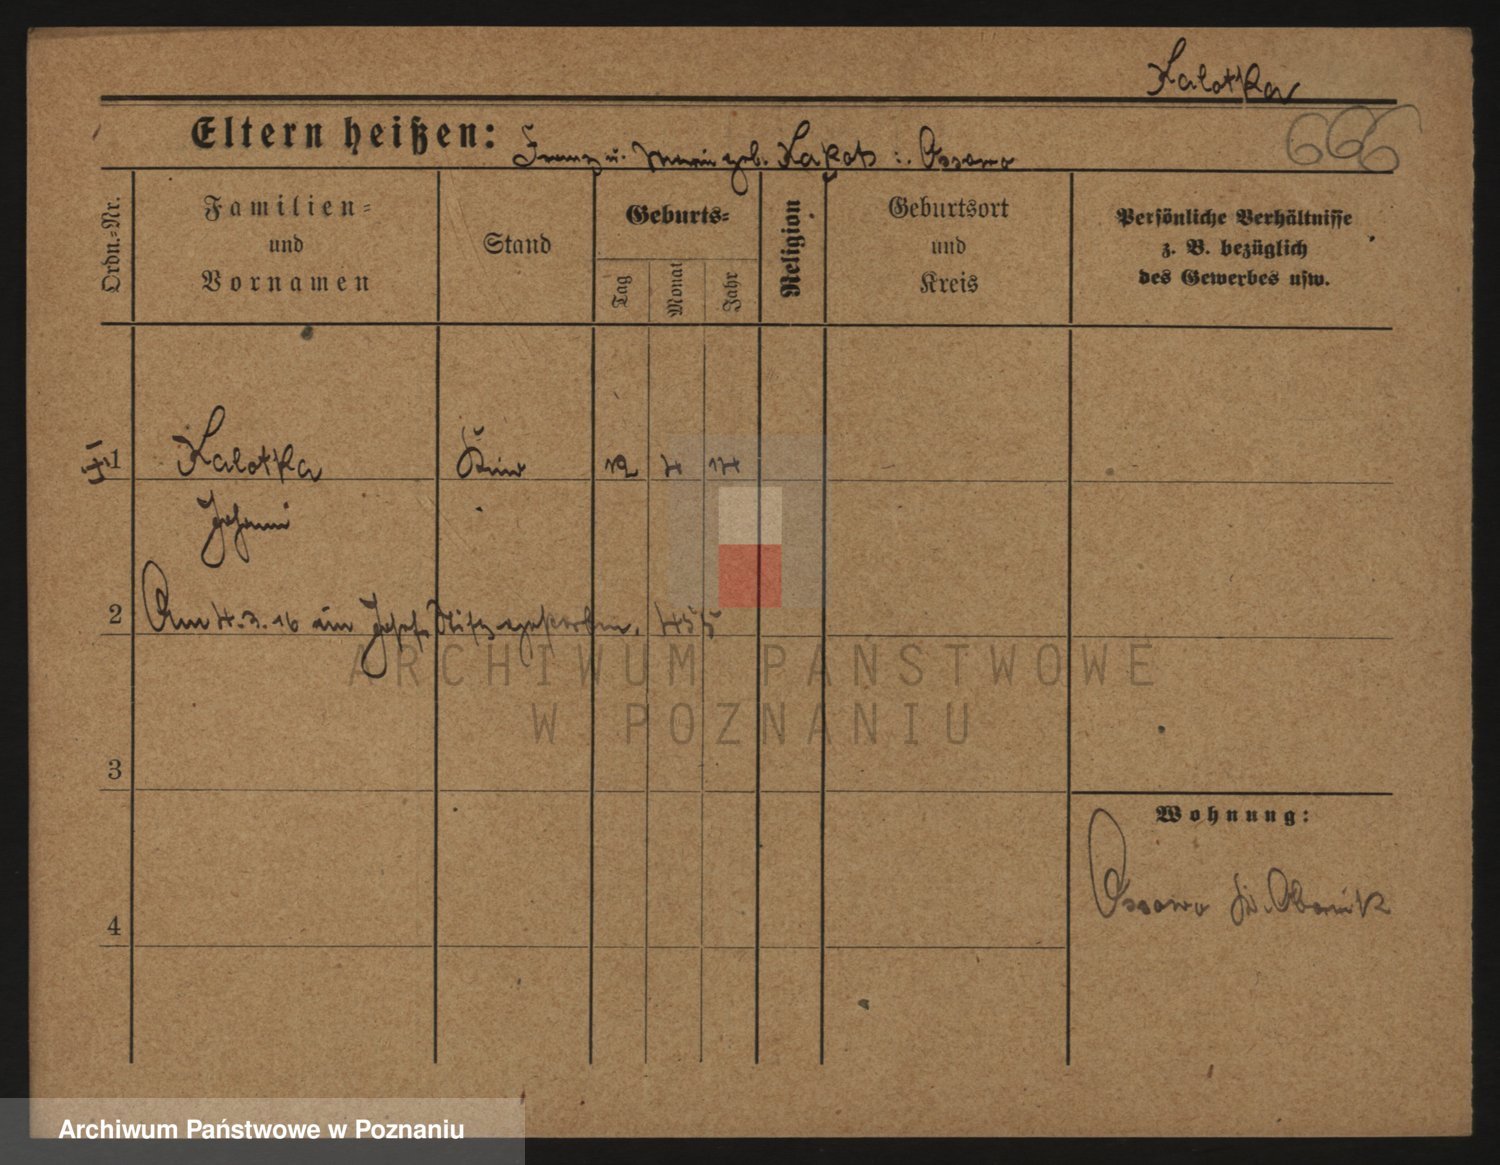 Kalotka
666
Eltern heißen: Franz u. Maria geb. : Ossowo
Ordn.-Nr.
Familien-
und
Vornamen
Stand
Geburts-
Tag
Monat
Jahr
Religion
Geburtsort
und
Kreis
Persönliche Verhältnisse
z. B. bezüglich
des Gewerbes usw.
1 Kalotka Kind 12 4 14
2 Am 4.3.16 in Josef gestorben. 455
3
4
Wohnung:
Ossowo Kr. Obornik
ARCHIWUM PAŃSTWOWE
W POZNANIU
Archiwum Państwowe w Poznaniu